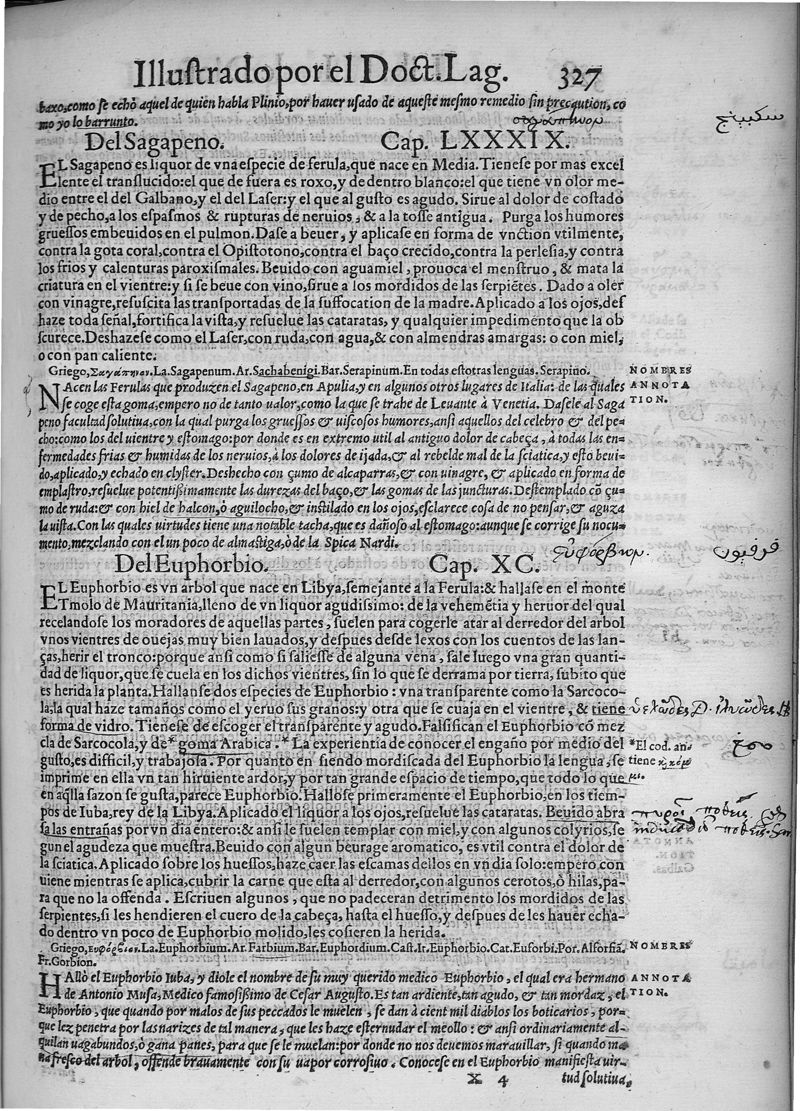 Illustrado por el Doct. Lag. 327
baxo, como se echò aquel de quien habla Plinio, por hauer usado de aqueste mesmo remedio sin precaution, co
mo yo lo barrunto.
سكبينج
Del Sagapeno. Cap. LXXXIX.
EL Sagapeno es liquor de vna especie de ferula, que nace en Media. Tienese por mas excel
lente el translucido: el que de fuera es roxo, y de dentro blanco: el que tiene vn olor me-
dio entre el del Galbano, y el del Laser: y el que al gusto es agudo. Sirue al dolor de costado
y de pecho, a los espasmos & rupturas de neruios, & a la tosse antigua. Purga los humores
gruessos embeuidos en el pulmon. Dase a beuer, y aplicase en forma de vnction vtilmente,
contra la gota coral, contra el Opistotono, contra el baço crecido, contra la perlesia, y contra
los frios y calenturas paroxismales. Beuido con aguamiel, prouoca el menstruo, & mata la
criatura en el vientre: y si se beue con vino, sirue a los mordidos de las serpiẽtes. Dado a oler
con vinagre, resuscita las transportadas de la suffocation de la madre. Aplicado a los ojos, des
haze toda señal, fortifica la vista, y resuelue las cataratas, y qualquier impedimento que la ob
scurece. Deshazese como el Laser, con ruda, con agua, & con almendras amargas: o con miel,
o con pan caliente.
Griego, Σαγάπηνον. La. Sagapenum. Ar. Sachabenigi. Bar. Serapinum. En todas estotras lenguas. Serapino.
NOMRES
NAcen las Ferulas que produzen el Sagapeno, en Apulia, y en algunos otros lugares de Italia: de las quales
ANNOTA
se coge esta goma, empero no de tanto ualor, como la que se trahe de Leuante à Venetia. Dasele al Saga
TION.
peno facultad solutiua, con la qual purga los gruessos & uiscosos humores, ansi aquellos del celebro & del pe-
cho: como los del uientre y estomago: por donde es en extremo util al antiguo dolor de cabeça, à todas las en-
fermedades frias & humidas de los neruios, à los dolores de ijada, & al rebelde mal de la sciatica, y esto beui-
do, aplicado, y echado en clyster. Deshecho con çumo de alcaparras, & con uinagre, & aplicado en forma de
emplastro, resuelue potentißimamente las durezas del baço, & las gomas de las juncturas. Destemplado cõ çu-
mo de ruda: & con hiel de halcon, ò aguilocho, & instilado en los ojos, esclarece cosa de no pensar, & aguza
la uista. Con las quales virtudes tiene una notable tacha, que es dañoso al estomago: aunque se corrige su nocu-
mento, mezclando con el un poco de almastiga, ò de la Spica Nardi.
εὐφόρβιον.
فرفيون
Del Euphorbio. Cap. XC.
EL Euphorbio es vn arbol que nace en Libya, semejante a la Ferula: & hallase en el monte
Tmolo de Mauritania, lleno de vn liquor agudissimo: de la vehemẽtia y heruor del qual
recelandose los moradores de aquellas partes, suelen para cogerle atar al derredor del arbol
vnos vientres de ouejas, muy bien lauados, y despues desde lexos con los cuentos de las lan-
ças, herir el tronco: porque ansi como si saliesse de alguna vena, sale luego vna gran quanti-
dad de liquor, que se cuela en los dichos vientres, sin lo que se derrama por tierra, subito que
es herida la planta. Hallanse dos especies de Euphorbio: vna transparente como la Sarcoco-
la, la qual haze tamaños como el yeruo sus granos: y otra que se cuaja en el vientre, & tiene
forma de vidro. Tienese de escoger el transparente y agudo. Falsifican el Euphorbio cõ mez
cla de Sarcocola, y de* goma Arabica.* La experientia de conocer el engaño por medio del
*El cod. an-
gusto, es difficil, y trabajosa. Por quanto en siendo mordiscada del Euphorbio la lengua, se
tiene κόμμι.
imprime en ella vn tan hiruiente ardor, y por tan grande espacio de tiempo, que todo lo que
en aq̃lla sazon se gusta, parece Euphorbio. Hallose primeramente el Euphorbio, en los tiem-
pos de Iuba, rey de la Libya. Aplicado el liquor a los ojos, resuelue las cataratas. Beuido abra
sa las entrañas por vn dia entero: & ansi le suelen templar con miel, y con algunos colyrios, se
gun el agudeza que muestra. Beuido con algun beurage aromatico, es vtil contra el dolor de
la sciatica. Aplicado sobre los huessos, haze caer las escamas dellos en vn dia solo: empero con
uiene mientras se aplica, cubrir la carne que esta al derredor, con algunos cerotos, ò hilas, pa-
ra que no la offenda. Escriuen algunos, que no padeceran detrimento los mordidos de las
serpientes, si les hendieren el cuero de la cabeça, hasta el huesso, y despues de les hauer echa-
do dentro vn poco de Euphorbio molido, les cosieren la herida.
Griego, Ευφόρβιον. La. Euphorbium. Ar. Farbium. Bar. Euphordium. Cast. It. Euphorbio. Cat. Euforbi. Por. Alforfiã.
NOMRES
Fr. Gorbion.
HAllò el Euphorbio Iuba, y diole el nombre de su muy querido medico Euphorbio, el qual era hermano
ANNOTA
de Antonio Musa, Medico famosißimo de Cesar Augusto. Es tan ardiente, tan agudo, & tan mordaz, el
TION.
Euphorbio, que quando por malos de sus peccados le muelen, se dan à cient mil diablos los boticarios, por-
que lez penetra por las narizes de tal manera, que les haze esternudar el meollo: & ansi ordinariamente al-
quilan uagabundos, ò gana panes, para que se le muelan: por donde no nos deuemos marauillar, si quando ma
na fresco del arbol, offende brauamente con su uapor corrosiuo. Conocese en el Euphorbio manifiesta uir-
X 4 tud solutiua,